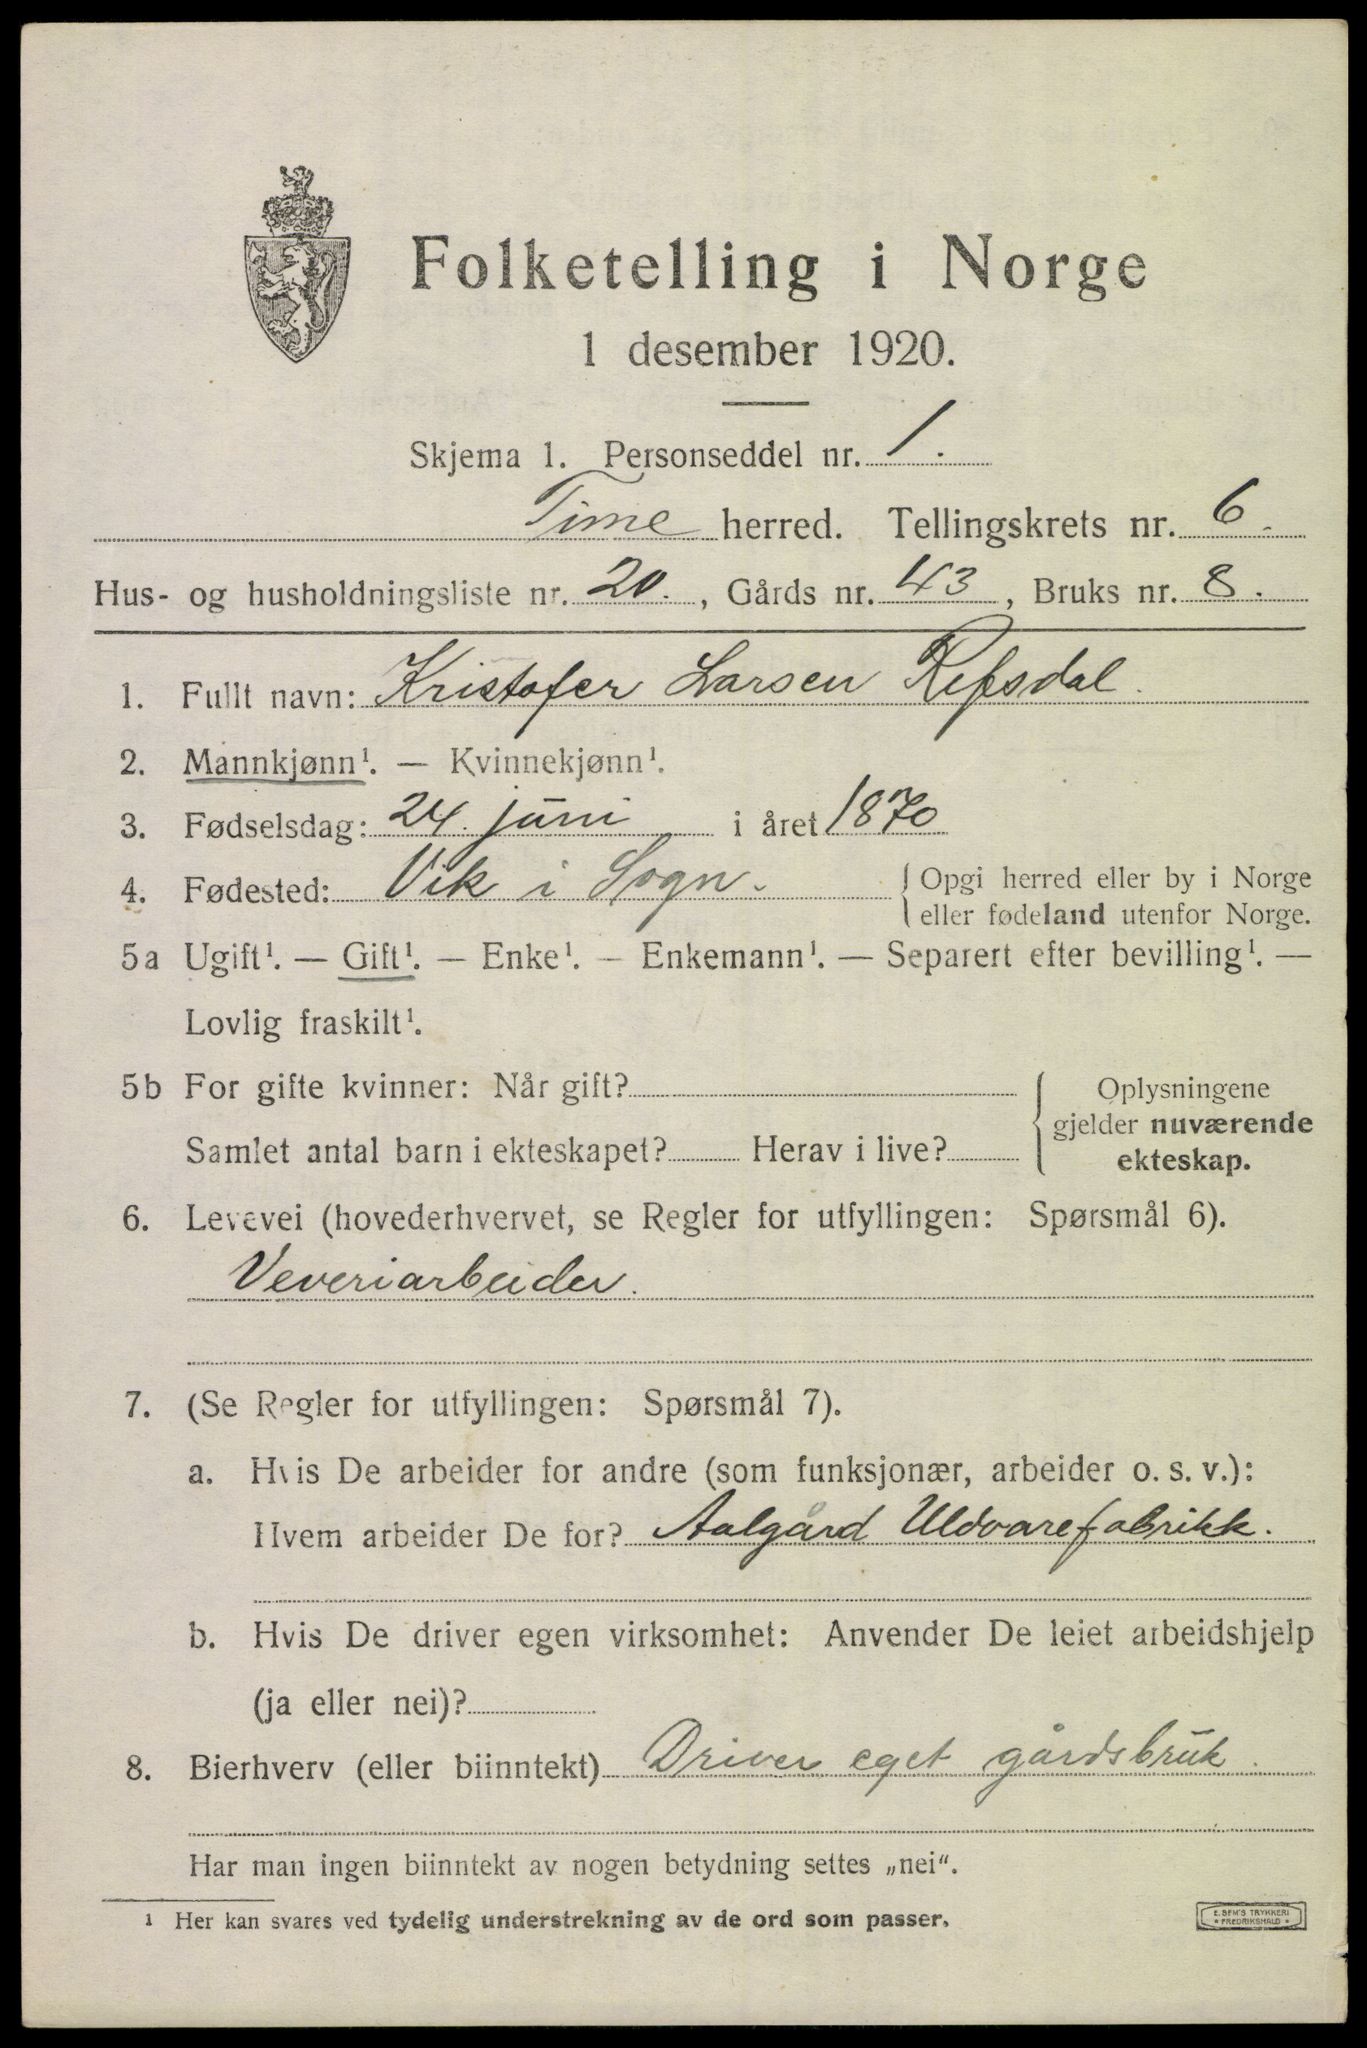 Folketelling i Norge
1 desember 1920.
Skjema 1. Personseddel nr. 1.
Time herred. Tellingskrets nr. 6.
Hus- og husholdningsliste nr. 20., Gårds nr. 43, Bruks nr. 8.
1. Fullt navn: Kristofer Larsen Refsdal.
2. Mannkjønn¹. — Kvinnekjønn¹.
3. Fødselsdag: 24. juni i året 1870
4. Fødested: Vik i Sogn. { Opgi herred eller by i Norge
eller fødeland utenfor Norge.
5a Ugift¹. — Gift¹. — Enke¹. — Enkemann¹. — Separert efter bevilling¹. —
Lovlig fraskilt¹.
5b For gifte kvinner: Når gift? { Oplysningene
gjelder nuværende
Samlet antal barn i ekteskapet? Herav i live?
ekteskap.
6. Levevei (hovederhvervet, se Regler for utfyllingen: Spørsmål 6).
Veveriarbeider.
7. (Se Regler for utfyllingen: Spørsmål 7).
a. Hvis De arbeider for andre (som funksjonær, arbeider o. s. v.):
Hvem arbeider De for? Aalgård Uldvarefabrikk.
b. Hvis De driver egen virksomhet: Anvender De leiet arbeidshjelp
(ja eller nei)?
8. Bierhverv (eller biinntekt) Driver eget gårdsbruk.
Har man ingen biinntekt av nogen betydning settes „nei“.
¹ Her kan svares ved tydelig understrekning av de ord som passer.
E. SEM'S TRYKKERI
* FREDRIKSHALD *